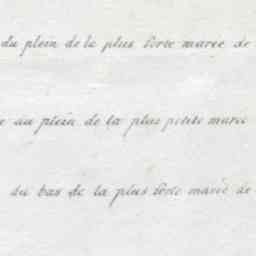 du plein de la plus forte marée de
au plein de la plus petite marée
du bas de la plus forte marée de